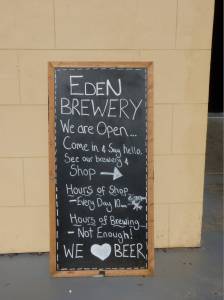 EDEN
BREWERY
We are Open...
Come in & Say hello.
See our brewery &
Shop
Hours of Shop
- Every Day 10...
Hours of Brewing
- Not Enough!
WE BEER